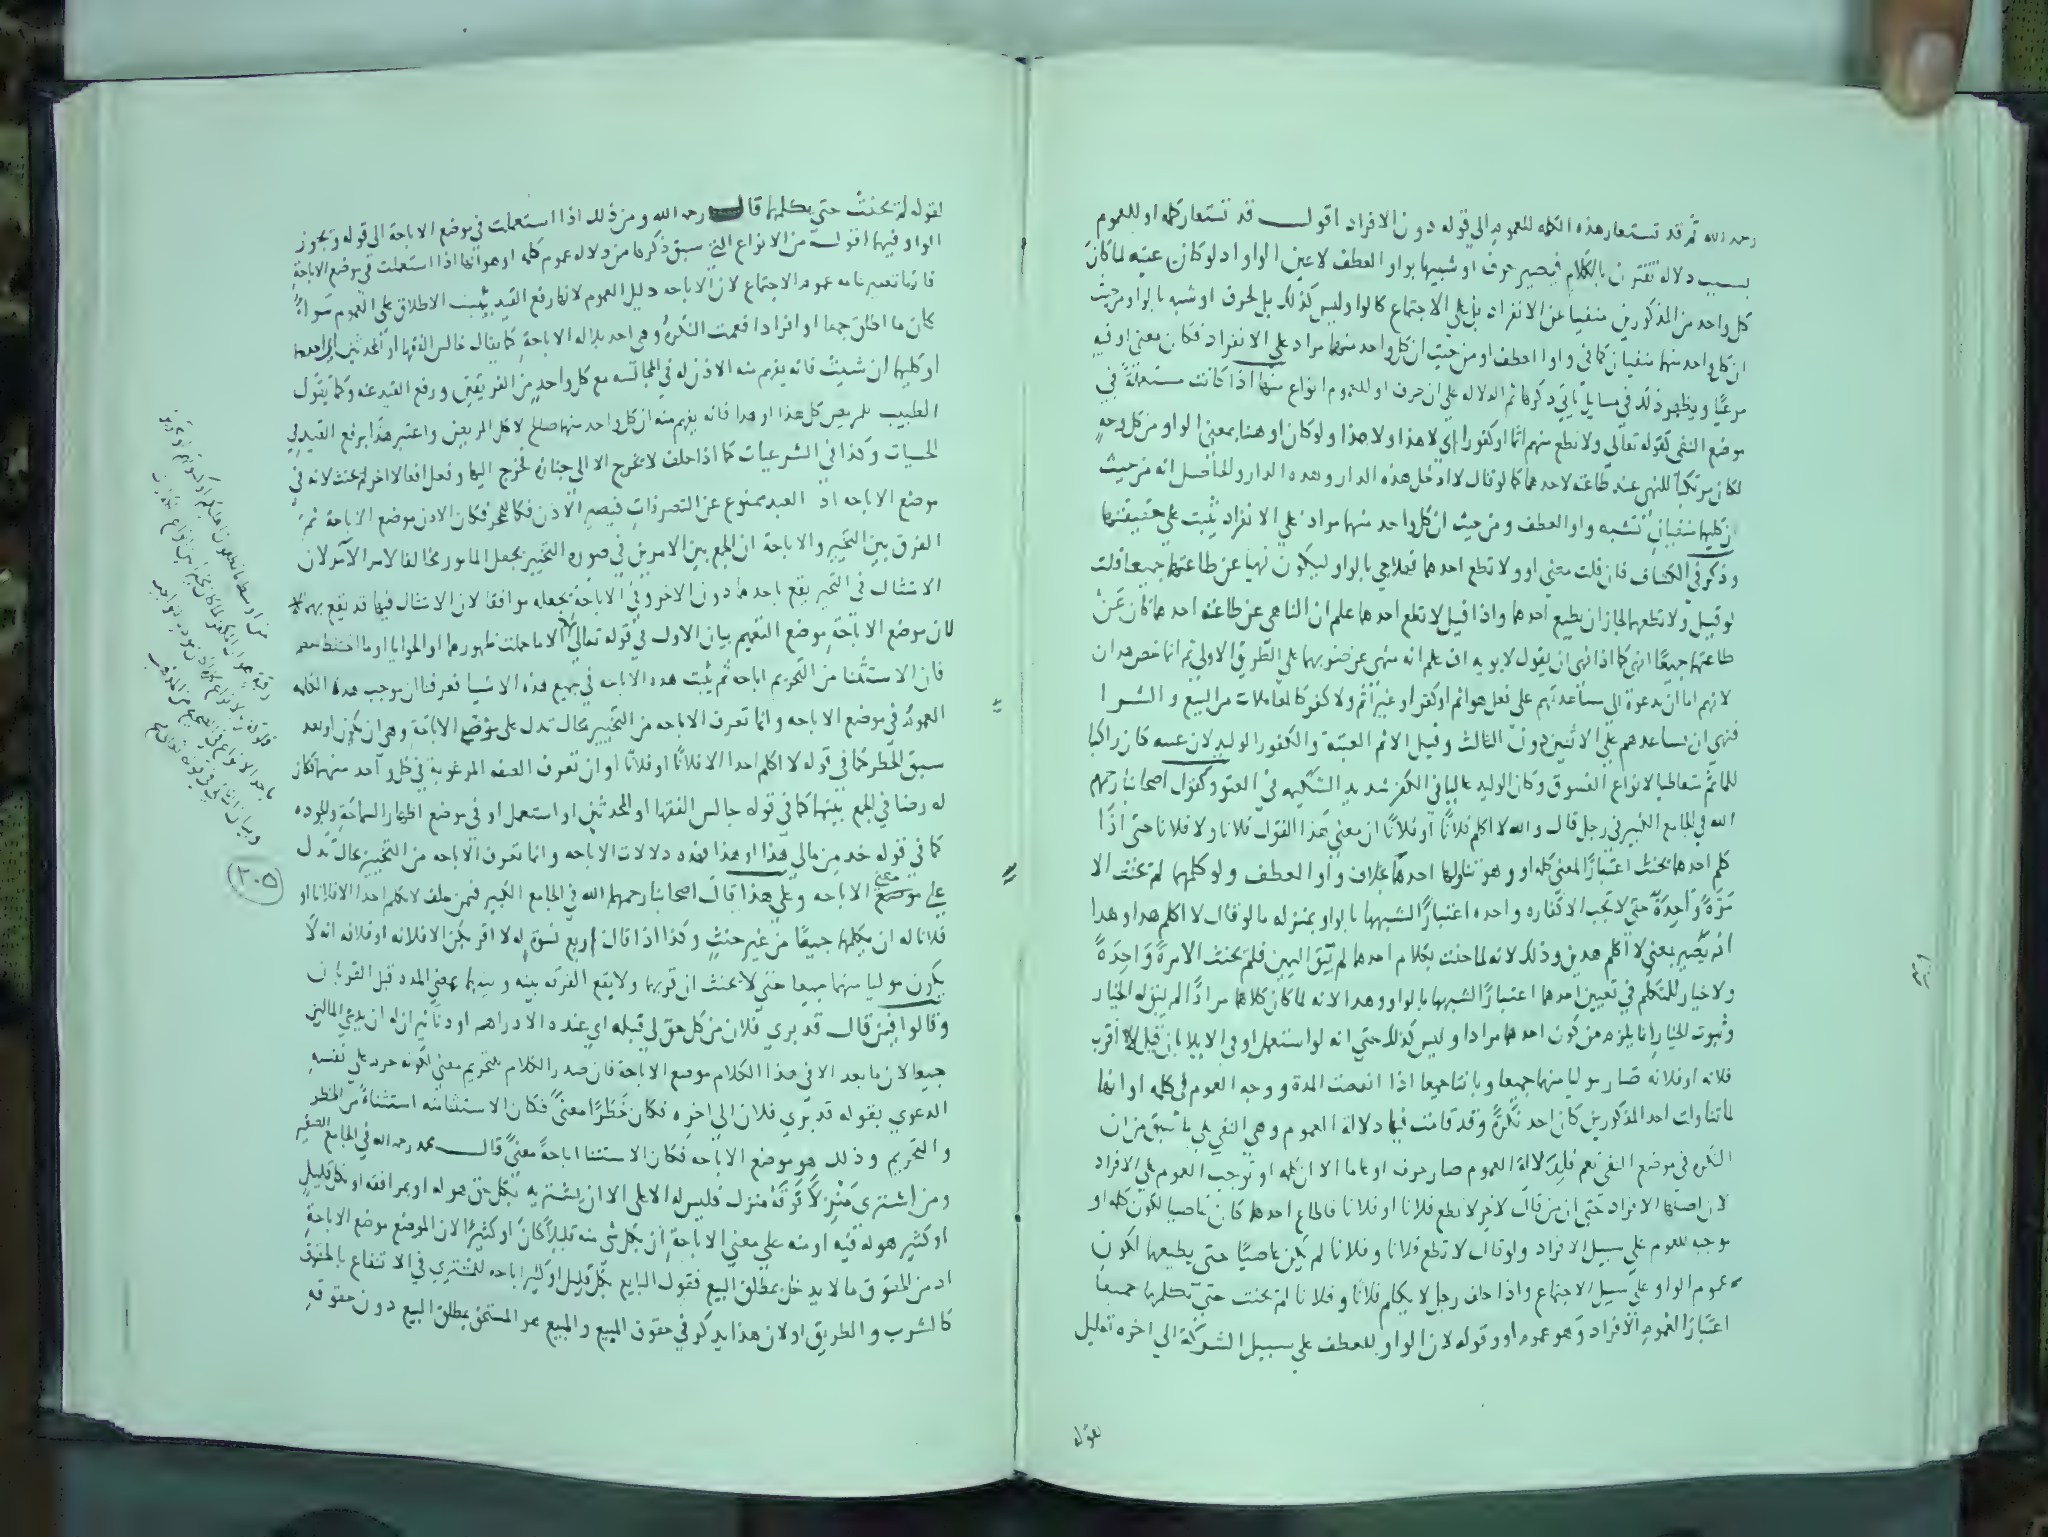 رحمه الله ثم قد تستعار هذه الكلمة للعموم الى قوله دون الافراد اقول قد تستعار كلمة او للعموم
بسبب دلالة تقترن بالكلام فيصير حرف او شبيها بواو العطف لا عين الواو اذ لو كان عينه لما كان
كل واحد من المذكورين منفيا عن الانفراد بل على الاجتماع كالواو وليس كذلك بل حرف او شبه بالواو من حيث
ان كل واحد منهما منفيان كما في واو العطف ومن حيث ان كل واحد منهما مراد على الانفراد فكان معنى او فيه
مرعيا ويظهر ذلك في مسايل ياتي ذكرها ثم الدلالة على ان حرف او للعموم انواع منها اذا كانت مستعملة في
موضع النفي كقوله تعالى ولا تطع منهم اثما او كفورا اي لا هذا ولا هذا ولو كان او هنا بمعنى الواو من كل وجه
لكان مرتكبا للنهي عند طاعته لاحدهما كما لو قال لا ادخل هذه الدار وهذه الدار والحاصل انه من حيث
ان كليهما منفيان تشبه واو العطف ومن حيث ان كل واحد منهما مراد على الانفراد يثبت على حقيقتها
وذكر في الكشاف فان قلت معنى او ولا تطع احدهما فهلا جي بالواو ليكون نهيا عن طاعتهما جميعا قلت
لو قيل ولا تطعهما لجاز ان يطيع احدهما واذا قيل لا تطع احدهما علم ان الناهي عن طاعة احدهما كان عن
طاعتهما جميعا انهى كما اذا نهى ان يقول لابويه اف علم انه منهي عن ضربهما على الطريق الاولى ثم انما خص هذان
لانهم اما ان يدعوه الى مساعدتهم على فعل هو اثم او كفر او غير اثم ولا كفر كالمعاملات من البيع والشرا
فنهي ان يساعدهم على الاثنين دون الثالث وقيل الاثم العتبة والكفور الوليد لان عتبه كان راكبا
للماثم متعاطيا لانواع الفسوق وكان الوليد غاليا في الكفر شديد الشكيمه في العتو وكقول اصحابنا رحمهم
الله في الجامع الكبير في رجل قال والله لا اكلم فلانا او فلانا ان معنى هذا القول فلانا ولا فلانا حتى اذا
كلم احدهما يحنث اعتبارا لمعنى كلمة او وهو تناولها احدهما بخلاف واو العطف ولو كلمهما لم يحنث الا
مرة واحدة حتى لا تجب الا كفاره واحده اعتبارا لشبهها بالواو بمنزله ما لو قال لا اكلم هذا وهذا
اذ يصير بمعنى لا اكلم هذين وذلك لانه لما حنث بكلام احدهما لم يبق اليمين فلم يحنث الا مرة واحدة
ولا خيار للمتكلم في تعيين احدهما اعتبارا لشبهها بالواو وهذا لانه لما كان كلاهما مرادا لم يبق له الخيار
وثبوت الخيار انما يلزم من كون احدهما مرادا وليس كذلك حتى انه لو استعمل او في الايلا بان قيل لا اقرب
فلانه او فلانه صار موليا منهما جميعا وبانتا جميعا اذا انقضت المدة ووجه العموم في كلمه او انها
لما تناولت احد المذكورين كان احد نكرة وقد قامت فيها دلالة العموم وهي النفي على ما سبق من ان
النكره في موضع النفي تعم فلدلالة العموم صار حرف او عاما الا ان كلمه او توجب العموم على الافراد
لان اصلها الافراد حتى ان من قال لاخر لا تطع فلانا او فلانا فاطاع احدهما كان عاصيا لكون كلمه او
موجبه للعموم على سبيل الافراد ولو قال لا تطع فلانا وفلانا لم يكن عاصيا حتى يطيعهما لكون
عموم الواو على سبيل الاجتماع واذا حلف رجل لا يكلم فلانا وفلانا لم يحنث حتى يكلمهما جميعا
اعتبارا لعموم الافراد وهو عموم او وقوله لان الواو للعطف على سبيل الشركة الى اخره تعليل
لقوله
لقوله لم يحنث حتى يكلمهما قال رحمه الله ومن ذلك اذا استعملت في موضع الاباحة الى قوله ويجوز
الواو فيهما اقول من الانواع التي سبق ذكرها من دلاله عموم كلمه او هو انها اذا استعملت في موضع الاباحة
فانها تصير عامه عموم الاجتماع لان الاباحه دليل العموم لانها رفع القيد يثبت الاطلاق على العموم سواء
كان ما اطلق جمعا او افرادا فعمت النكرة وهي احد بدلاله الاباحة كما يقال جالس الفقها او المحدثين اي احدهما
او كليهما ان شئت فانه يفهم منه الاذن له في المجالسه مع كل واحد من الفريقين ورفع القيد عنه وكما يقول
الطبيب للمريض كل هذا او هذا فانه يفهم منه ان كل واحد منهما صالح لاكل المريض واعتبر هذا برفع القيد في
الحسيات وكذا في الشرعيات كما اذا حلف لا يخرج الا الى جنازة فخرج اليها وفعل افعالا اخر لم يحنث لانه في
موضع الاباحه اذ العبد ممنوع عن التصرفات فيصير الاذن فكا للحجر فكان الاذن موضع الاباحة ثم
الفرق بين التخيير والاباحة ان الجمع بين الامرين في صوره التخيير يجعل المامور مخالفا لامر الامر لان
الامتثال في التخيير يقع باحدهما دون الاخر وفي الاباحة يجعله موافقا لان الامتثال فيها قد يقع بهما
لان موضع الاباحة موضع التعميم بيان الاول في قوله تعالى الا ما حملت ظهورهما او الحوايا او ما اختلط بعظم
فان الاستثنا من التحريم اباحه ثم يثبت هذه الاباحه في جميع هذه الاشيا فعرفنا ان موجب هذه الكلمه
العموم في موضع الاباحه وانما تعرف الاباحه من التخيير بحال تدل على موضع الاباحة وهي ان يكون او بعد
سبق الحظر كما في قوله لا اكلم احدا الا فلانا او فلانا او ان تعرف الصفه المرغوبة في كل واحد منهما فكان
له رضا في الجمع بينهما كما في قوله جالس الفقها او المحدثين او استعمل او في موضع اظهار السماحة والجوده
كما في قوله خذ من مالي هذا او هذا فهذه دلالات الاباحه وانما تعرف الاباحه من التخيير بحال تدل
على موضع الاباحه وعلى هذا قال اصحابنا رحمهم الله في الجامع الكبير فيمن حلف لا يكلم احدا الا فلانا او
فلانا له ان يكلمهما جميعا من غير حنث وكذا اذا قال اربع نسوة له لا اقربكن الا فلانه او فلانه انه لا
يكون موليا منهما جميعا حتى لا يحنث ان قربهما ولا يقع الفرقه بينه وبينهما بمضي المده قبل القربان
وقالوا فيمن قال قد بري فلان من كل حق لي قبله اي عنده الا دراهم او دنانير ان له ان يدعي المالين
جميعا لان ما بعد الا في هذا الكلام موضع الاباحة فان صدر الكلام للتحريم معنى لكونه حرم على نفسه
الدعوي بقوله قد بري فلان الى اخره فكان حظرا معنى فكان الاستثنا منه استثناء من الحظر
والتحريم وذلك هو موضع الاباحه فكان الاستثنا اباحة معنى قال محمد رحمه الله في الجامع الصغير
ومن اشترى منزلا فوقه منزل فليس له الاعلى الا ان يشتريه بكل حق هو له او بمرافقه او بكل قليل
او كثير هو له فيه او منه على معنى الاباحة اي بكل شي منه قليلا كان او كثيرا لان الموضع موضع الاباحة
اذ من الحقوق ما لا يدخل بمطلق البيع فقول البايع بكل قليل او كثير اباحه للمشتري في الانتفاع بالحقوق
كالشرب والطريق او لان هذا يذكر في حقوق المبيع والمبيع هو المستحق بمطلق البيع دون حقوقه
٢٠٥